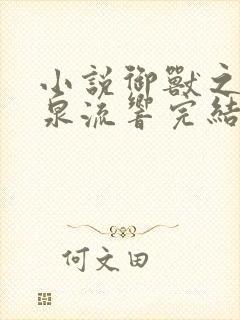 小説御獸之
泉流響完結
何文田